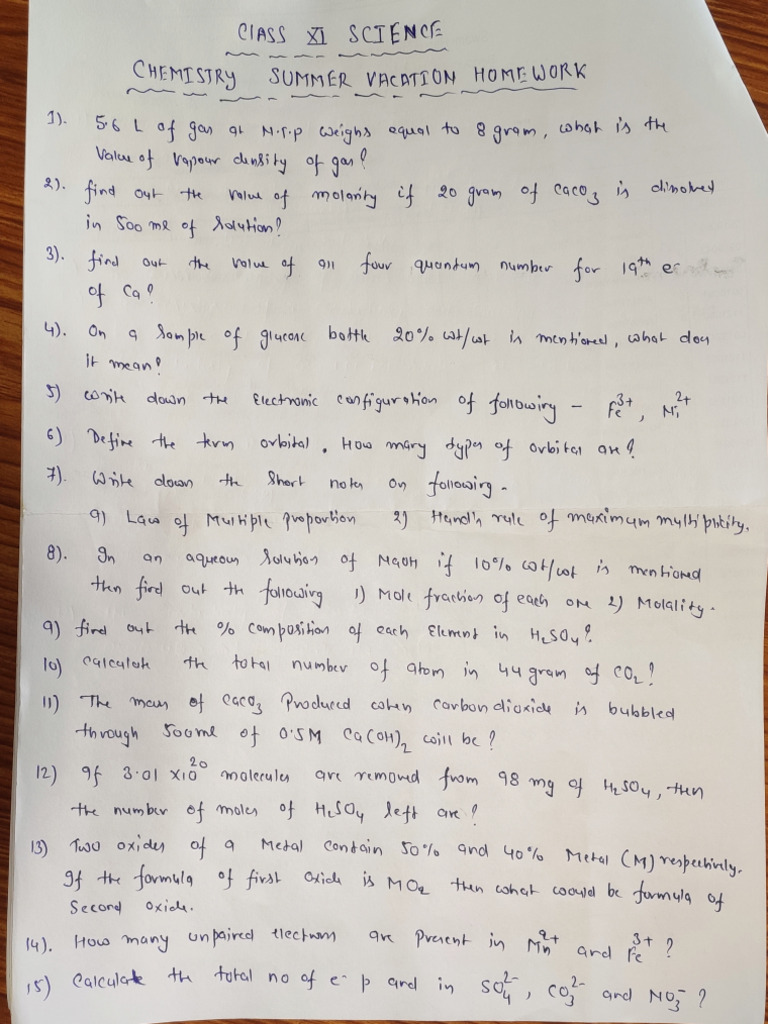 CLASS XI SCIENCE
CHEMISTRY SUMMER VACATION HOMEWORK
1). 5.6 L of gas at N.T.P weighs equal to 8 gram, what is the
Value of Vapour density of gas?
2). find out the value of molarity if 20 gram of CaCO₃ is dissolved
in 500 ml of Solution?
3). find out the value of all four quantum number for 19th e⁻
of Ca?
4). On a Sample of glucose bottle 20% wt/wt is mentioned, what does
it mean?
5) write down the Electronic configuration of following – Fe³⁺, Ni²⁺
6) Define the term orbital. How many types of orbital are?
7). Write down the Short notes on following.
a) Law of Multiple proportion 2) Hund's rule of maximum multiplicity.
8). In an aqueous Solution of NaOH if 10% wt/wt is mentioned
then find out the following 1) Mole fraction of each one 2) Molality.
9) find out the % composition of each Element in H₂SO₄?
10) Calculate the total number of atom in 44 gram of CO₂?
11) The mass of CaCO₃ Produced when carbondioxide is bubbled
through 500ml of 0.5M Ca(OH)₂ will be?
12) If 3.01 x10²⁰ molecules are removed from 98 mg of H₂SO₄, then
the number of moles of H₂SO₄ left are?
13) Two oxides of a Metal contain 50% and 40% Metal (M) respectively.
If the formula of first oxide is MO₂ then what would be formula of
Second oxide.
14). How many unpaired electrons are present in Mn²⁺ and Fe³⁺?
15) Calculate the total no of e⁻ p and in SO₄²⁻, CO₃²⁻ and NO₃⁻?